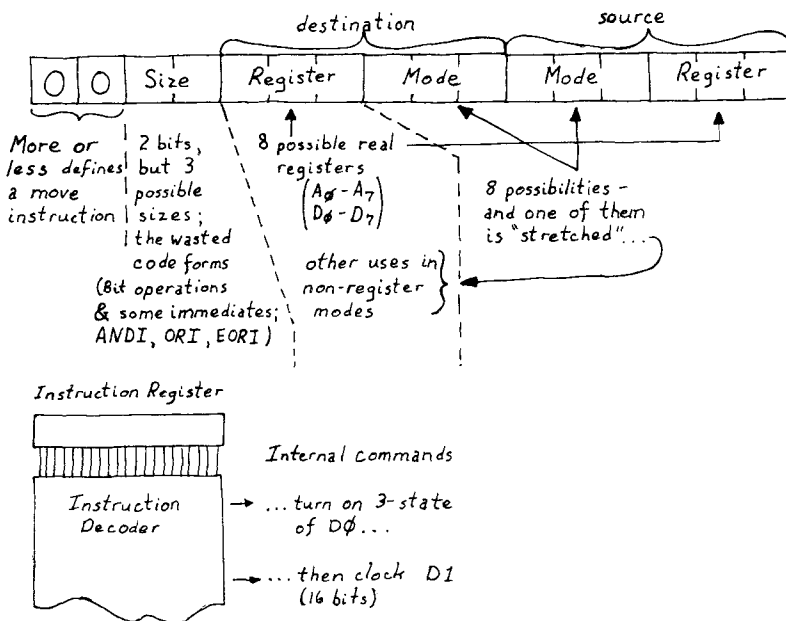 destination
source
0 0 Size Register Mode Mode Register
More or
less defines
a move
instruction
2 bits,
but 3
possible
sizes;
the wasted
code forms
(Bit operations
& some immediates;
ANDI, ORI, EORI)
8 possible real
registers
(AØ-A7
DØ-D7)
other uses in
non-register
modes
8 possibilities -
and one of them
is "stretched"...
Instruction Register
Instruction
Decoder
Internal commands
...turn on 3-state
of DØ...
...then clock D1
(16 bits)